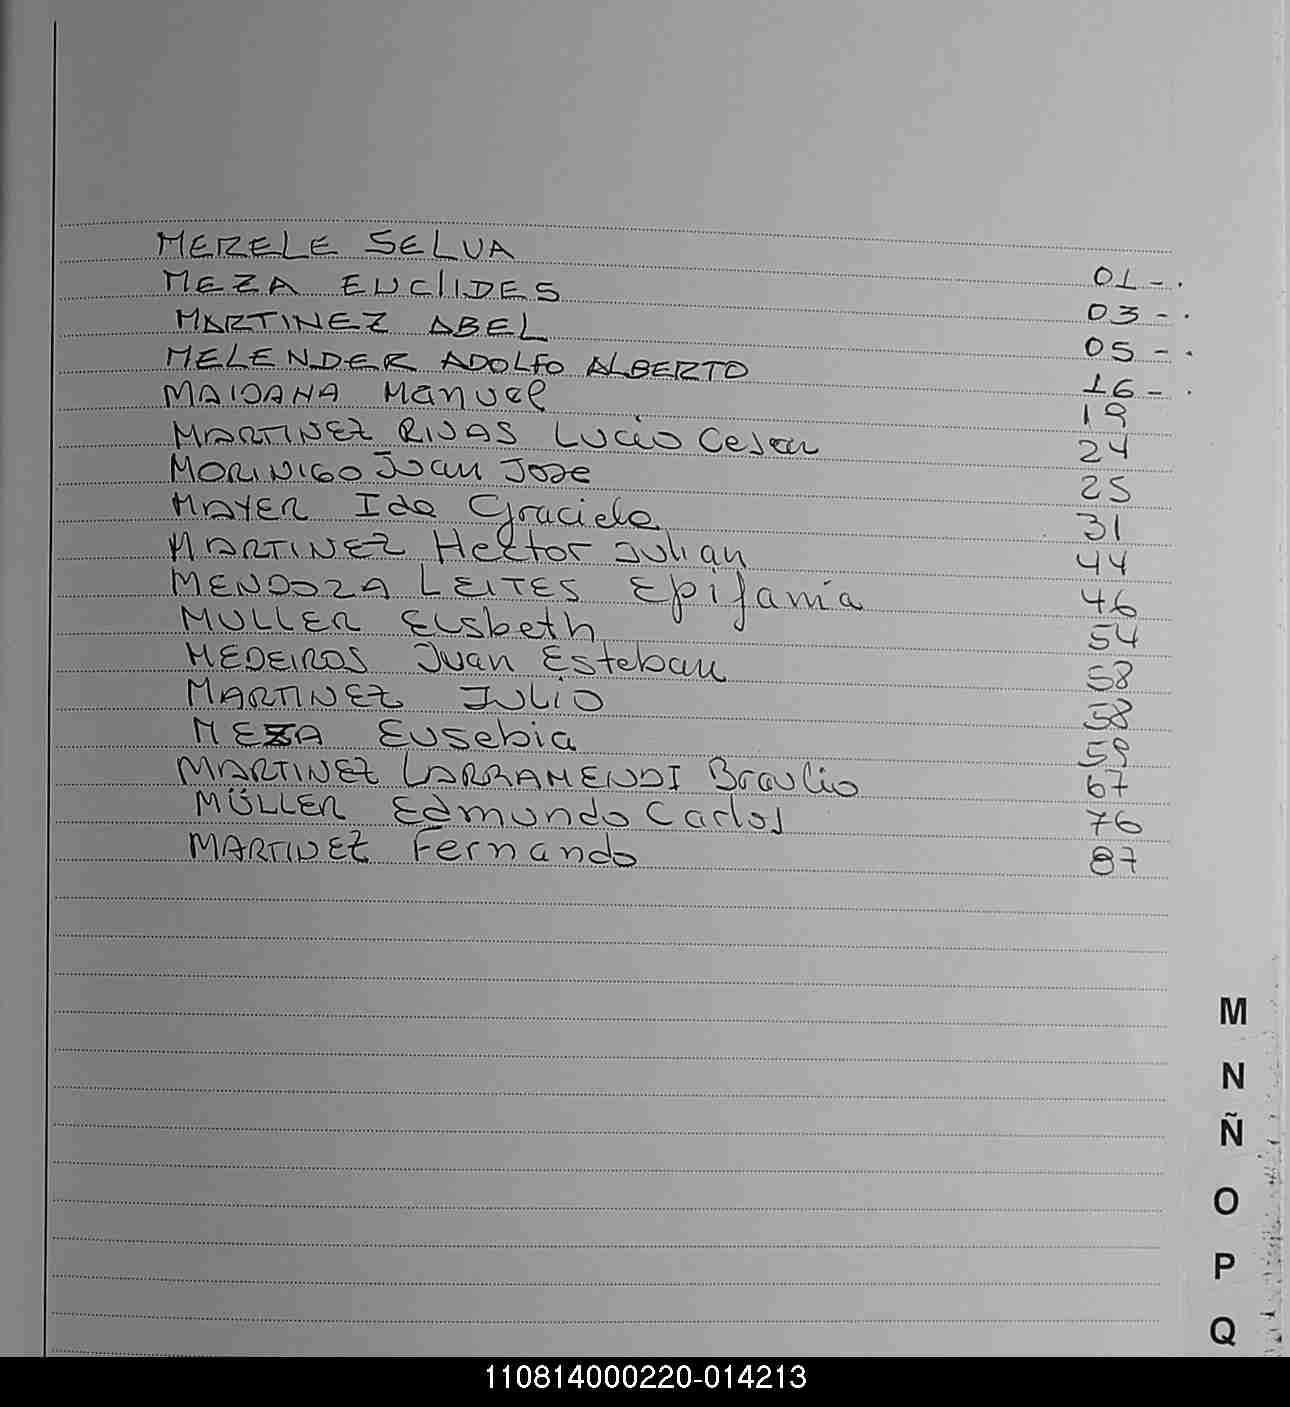 MERELE SELVA 01-.
MEZA EUClIDES 03-.
MARTINEZ ABEL 05-.
MELENDER ADOLFO ALBERTO 16-.
MAIDANA Manuel 19
MARTINEZ RIVAS Lucio Cesar 24
MORINIGO Juan Jose 25
MAYER Ida Graciela 31
MARTINEZ Hector Julian 44
MENDOZA LEITES Epifania 46
MULLER Elsbeth 54
MEDEIROS Juan Esteban 58
MARTINEZ JULIO 58
MEZA Eusebia 59
MARTINEZ LARRAMENDI Braulio 67
MÜLLER Edmundo Carlos 76
MARTINEZ Fernando 87
M
N
Ñ
O
P
Q
110814000220-014213